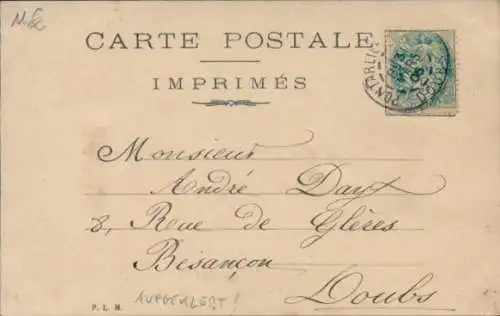 M&
CARTE POSTALE
IMPRIMÉS
PONTARLIER
DOUBS
Monsieur
André Day
8, Rue de Glères
Besançon
Doubs
P. L. M.
AUFGEKLEBT!